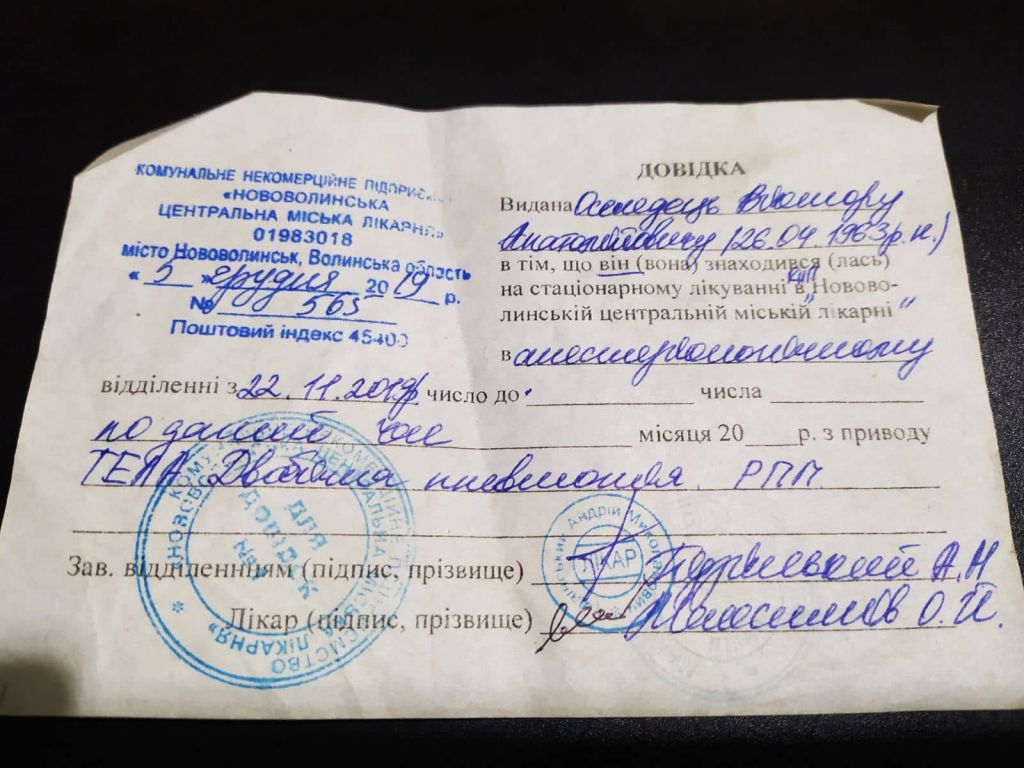 КОМУНАЛЬНЕ НЕКОМЕРЦІЙНЕ ПІДПРИЄМСТВО
«НОВОВОЛИНСЬКА
ЦЕНТРАЛЬНА МІСЬКА ЛІКАРНЯ»
01983018
місто Нововолинськ, Волинська область
« 5 » грудня 2019 р.
№ 565
Поштовий індекс 45400
ДОВІДКА
Видана Віктору
Анатолійовичу (26.04.1963 р.н.)
в тім, що він (вона) знаходився (лась)
на стаціонарному лікуванні в КНП "Нововo-
линській центральній міській лікарні"
в анестезіологічному
відділенні з 22.11.2019р. число до числа
по даний час місяця 20 р. з приводу
ТЕЛА Двобічна пневмонія. РПП
Зав. відділенням (підпис, прізвище) А.М
Лікар (підпис, прізвище) О.Й.
ДЛЯ
ДОВІДОК
№1
ЛІКАР
Андрій Миколайович